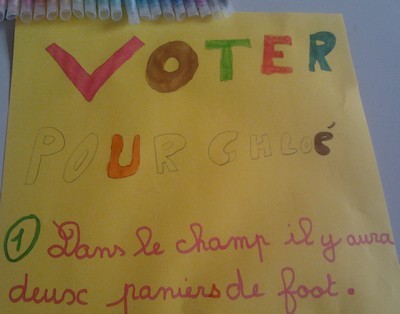 VOTER
POUR CHLOÉ
1 Dans le champ il y aura
deux paniers de foot.